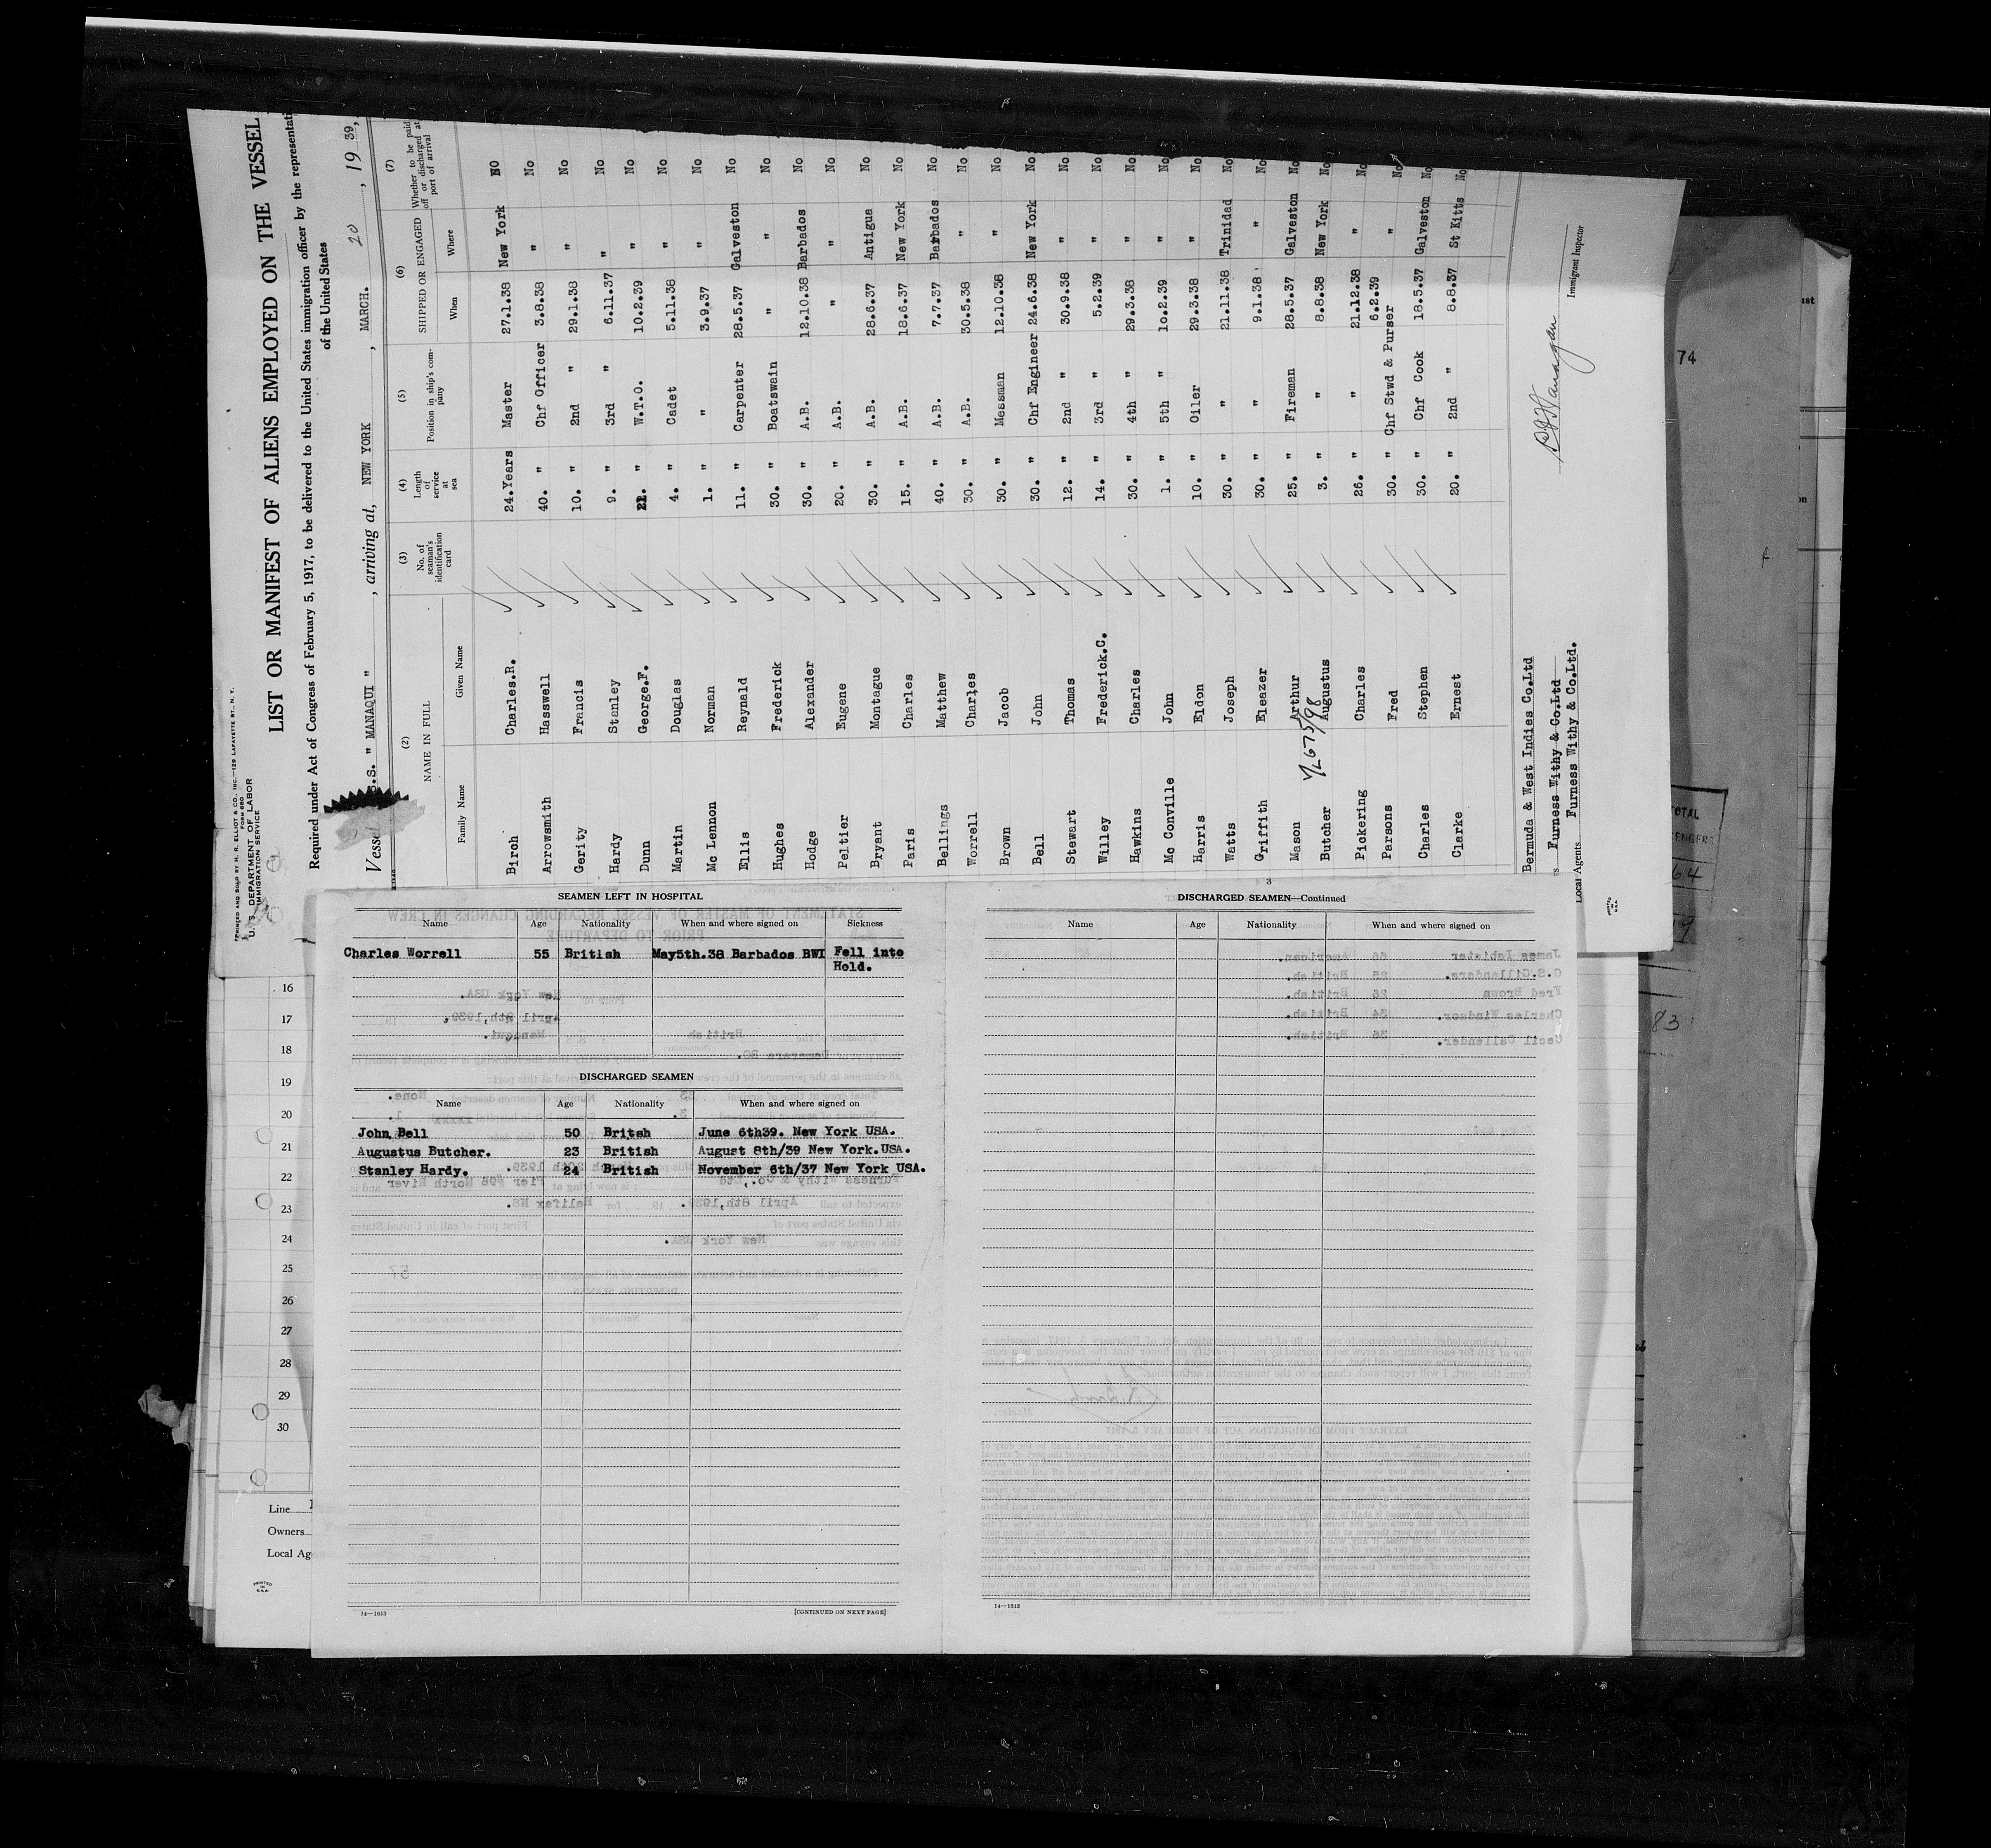 PRINTED AND SOLD BY H. R. ELLIOT & CO., INC.—129 LAFAYETTE ST., N. Y.
FORM 680
U. S. DEPARTMENT OF LABOR
IMMIGRATION SERVICE
LIST OR MANIFEST OF ALIENS EMPLOYED ON THE VESSEL
Required under Act of Congress of February 5, 1917, to be delivered to the United States immigration officer by the representati
of the United States
Vessel S.S. " MANAQUI ", arriving at, NEW YORK, MARCH. 20, 19 39,
(2) (3) (4) (5) (6) (7)
NAME IN FULL No. of seaman's identification card Length of service at sea Position in ship's company SHIPPED OR ENGAGED Whether to be paid off or discharged at port of arrival
Family Name Given Name When Where
Birch Charles.R. 24.Years Master 27.1.38 New York No
Arrowsmith Hasswell 40. " Chf Officer 3.8.38 " No
Gerity Francis 10. " 2nd " 29.1.38 " No
Hardy Stanley 9. " 3rd " 6.11.37 " No
Dunn George.F. 22. " W.T.O. 10.2.39 " No
Martin Douglas 4. " Cadet 5.11.38 " No
Mc Lennon Norman 1. " " 3.9.37 " No
Ellis Reynald 11. " Carpenter 28.5.37 Galveston No
Hughes Frederick 30. " Boatswain " " No
Hodge Alexander 30. " A.B. 12.10.38 Barbados No
Peltier Eugene 20. " A.B. " " No
Bryant Montague 30. " A.B. 28.6.37 Antigua No
Paris Charles 15. " A.B. 18.6.37 New York No
Bellings Matthew 40. " A.B. 7.7.37 Barbados No
Worrell Charles 30. " A.B. 30.5.38 " No
Brown Jacob 30. " Messman 12.10.38 " No
Bell John 30. " Chf Engineer 24.6.38 New York No
Stewart Thomas 12. " 2nd " 30.9.38 " No
Willey Frederick.C. 14. " 3rd " 5.2.39 " No
Hawkins Charles 30. " 4th " 29.3.38 " No
Mc Conville John 1. " 5th " 10.2.39 " No
Harris Eldon 10. " Oiler 29.3.38 " No
Watts Joseph 30. " " 21.11.38 Trinidad No
Griffith Eleazer 30. " " 9.1.38 " No
Mason Arthur 25. " Fireman 28.5.37 Galveston No
Butcher Augustus 3. " " 8.8.38 New York No
Pickering Charles 26. " " 21.12.38 " No
Parsons Fred 30. " Chf Stwd & Purser 6.2.39 " No
Charles Stephen 30. " Chf Cook 18.5.37 Galveston No
Clarke Ernest 20. " 2nd " 8.8.37 St Kitts No
Bermuda & West Indies Co.Ltd
Furness Withy & Co.Ltd
Local Agents Furness Withy & Co.Ltd.
Immigrant Inspector
SEAMEN LEFT IN HOSPITAL
Name Age Nationality When and where signed on Sickness
Charles Worrell 55 British May5th.38 Barbados BWI Fell into
Hold.
DISCHARGED SEAMEN
Name Age Nationality When and where signed on
John Bell 50 Britsh June 6th39. New York USA.
Augustus Butcher. 23 British August 8th/39 New York.USA.
Stanley Hardy. 24 British November 6th/37 New York USA.
14—1613
[CONTINUED ON NEXT PAGE]
3
DISCHARGED SEAMEN—Continued
Name Age Nationality When and where signed on
14—1613
16
17
18
19
20
21
22
23
24
25
26
27
28
29
30
Line
Owners
Local Ag
PRINTED IN U.S.A.
74
64
83